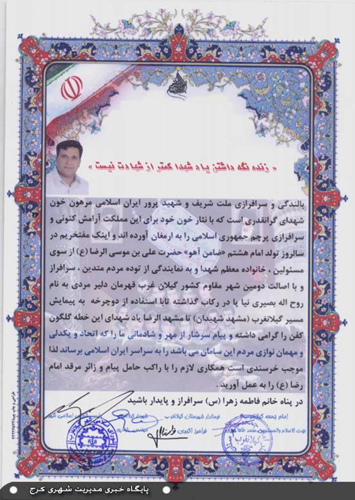 « زنده نگه داشتن یاد شهدا کمتر از شهادت نیست »
بالندگی و سرافرازی ملت شریف و شهید پرور ایران اسلامی مرهون خون
شهدای گرانقدری است که با نثار خون خود برای این مملکت آرامش کنونی و
سرافرازی پرچم جمهوری اسلامی را به ارمغان آورده اند و اینک مفتخریم در
سالروز تولد امام هشتم «ضامن آهو» حضرت علی بن موسی الرضا (ع) از سوی
مسئولین ، خانواده معظم شهدا و به نمایندگی از توده مردم متدین ، سرافراز
و با اصالت دومین شهر مقاوم کشور گیلان غرب قهرمان دلیر مردی به نام
روح اله بصیری نیا پا در رکاب گذاشته تا با استفاده از دوچرخه به پیمایش
مسیر گیلانغرب (مشهد شهیدان) تا مشهد الرضا یاد شهدای این خطه گلگون
کفن را گرامی داشته و پیام سرشار از مهر و شادمانی ما را که اتحاد و یکدلی
و مهمان نوازی مردم این سامان می باشد را به سراسر ایران اسلامی برساند لذا
موجب خرسندی است همکاری لازم را با راکب حامل پیام و زائر مرقد امام
رضا (ع) را به عمل آورید .
در پناه خانم فاطمه زهرا (س) سرافراز و پایدار باشید
امام جمعه گیلانغرب
فرماندار شهرستان گیلانغرب
پایگاه خبری مدیریت شهری کرج